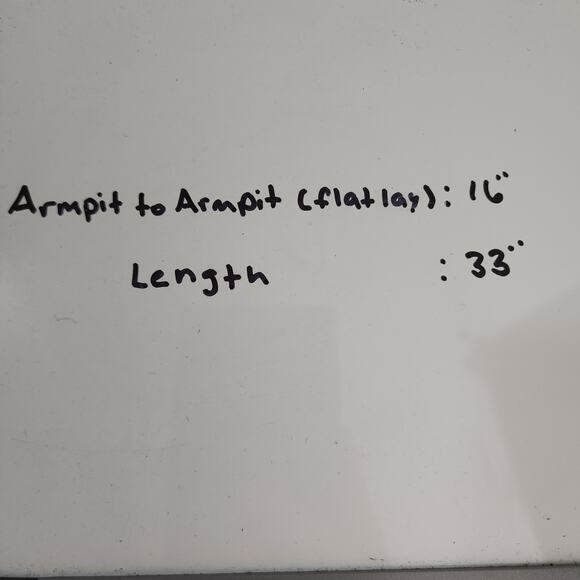 Armpit to Armpit (flatlay): 16"
Length : 33"